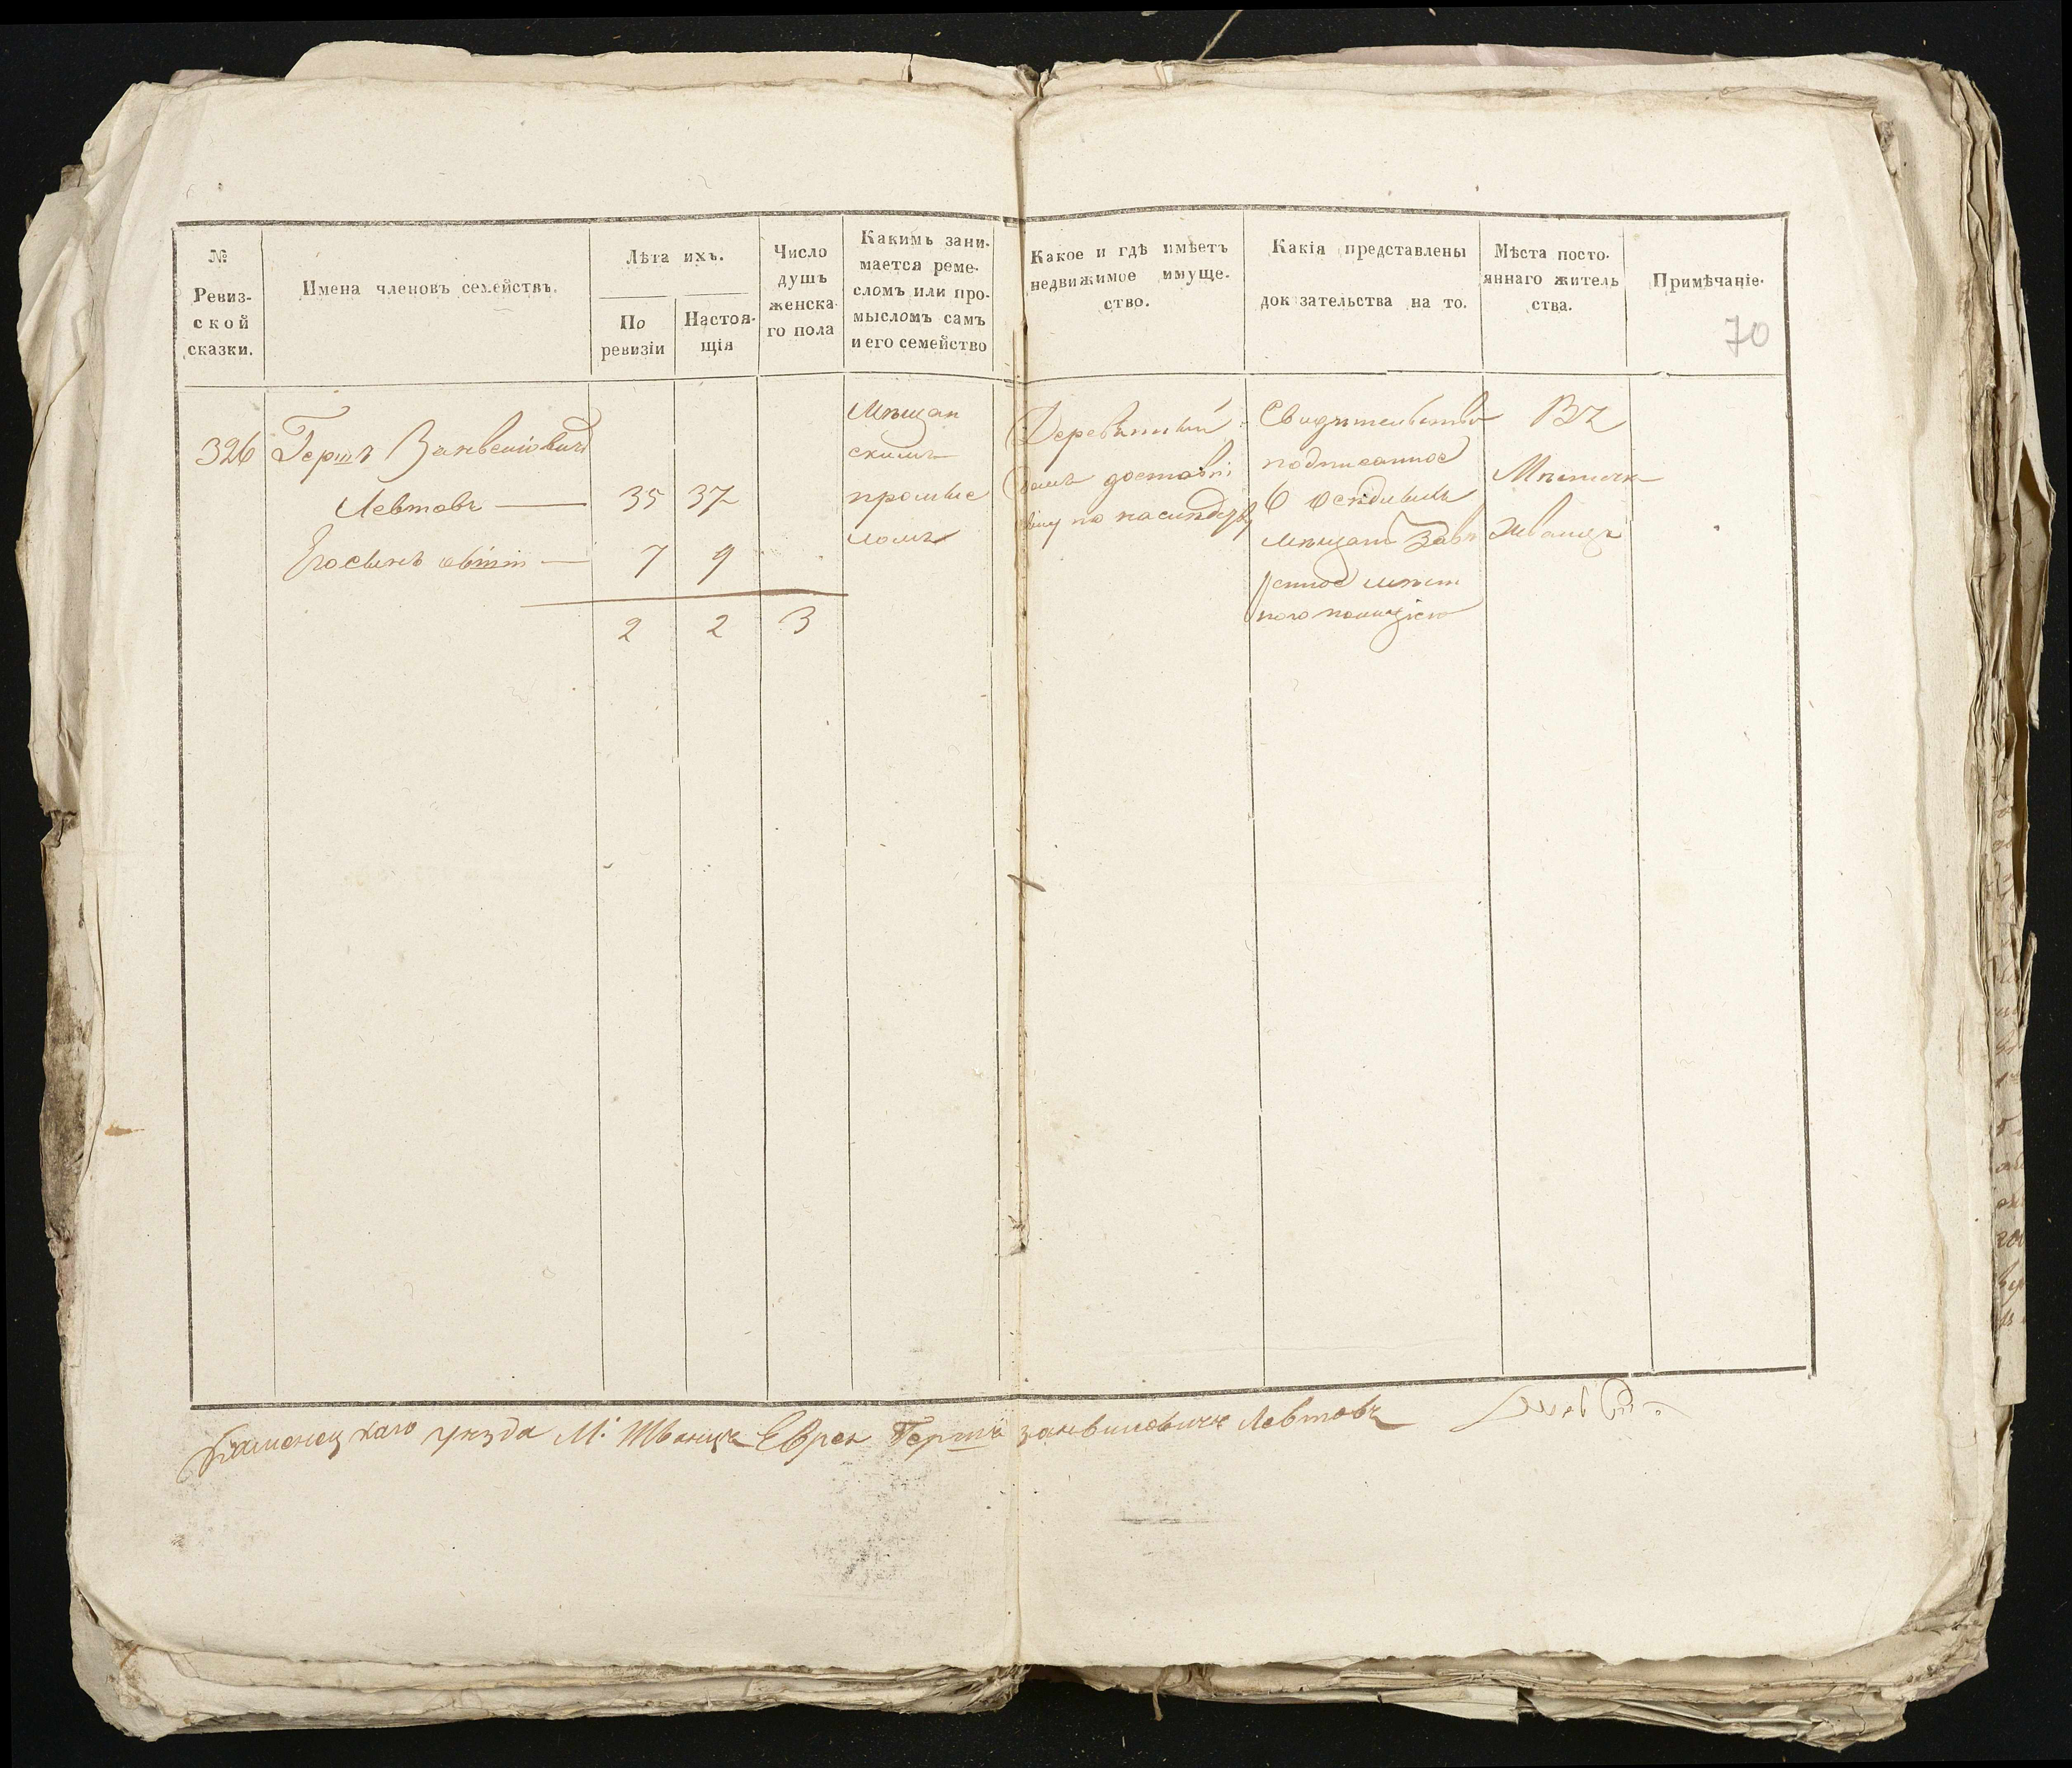 №
Ревиз-
ской
сказки.
Имена членовъ семействъ.
Лѣта ихъ.
По
ревизіи
Настоя-
щія
Число
душъ
женска-
го пола
Какимъ зани-
мается реме-
сломъ или про-
мысломъ самъ
и его семейство
Какое и гдѣ имѣетъ
недвижимое имуще-
ство.
Какія представлены
док зательства на то.
Мѣста посто-
яннаго житель
ства.
Примѣчаніе.
70
326
Гершъ Занвеліовичъ
Левтовъ 35 37
7 9
2 2 3
Мѣщан
скимъ
промыс
ломъ
Деревянный
домъ доставш
по наслѣдству
Свидѣтельство
подписанное
6
мѣщанъ завѣ
ренное мѣст
ною полиціею
Въ
Мѣстечкѣ
Жванцѣ
Каменецкаго уѣзда М: Жванца Еврей Гершъ занвиловичъ Левтовъ